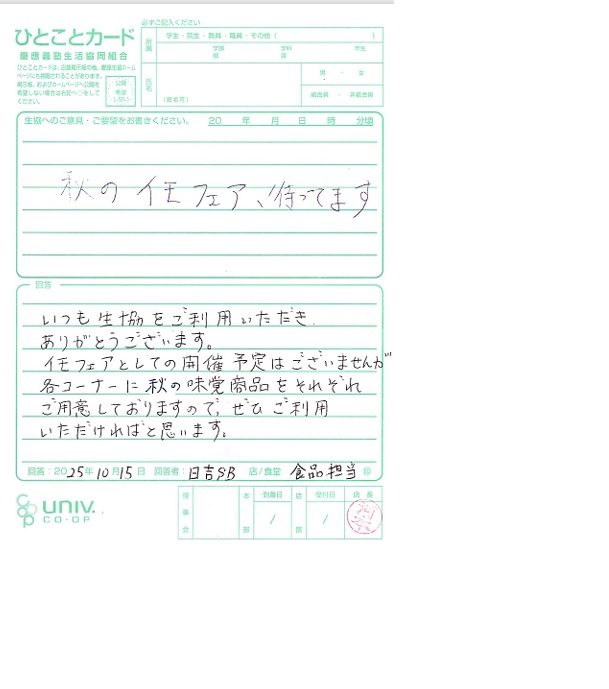 必ずご記入ください
ひとことカード
慶應義塾生活協同組合
ひとことカードは、店頭掲示板の他、慶應生協ホーム
ページにも掲載されることがあります。
掲示板、およびホームページへ公開を
希望しない場合は右記へ○をしてください
公開
希望
しない
所属
学生・院生・教員・職員・その他（　　）
学部 学科 年生
氏名
（匿名可）
男 ・ 女
組合員 ・ 非組合員
生協へのご意見・ご要望をお書きください。 20 年 月 日 時 分頃
秋の イモフェア、待ってます
回答
いつも生協をご利用いただき
ありがとうございます。
イモフェアとしての開催予定はございませんが
各コーナーに秋の味覚商品をそれぞれ
ご用意しておりますので、ぜひご利用
いただければと思います。
回答：2025年10月15日 回答者：日吉SB 店/食堂 食品担当 ㊞
UNIV.
CO-OP
理事会
本部
到着日
/
店部
受付日
/
店長